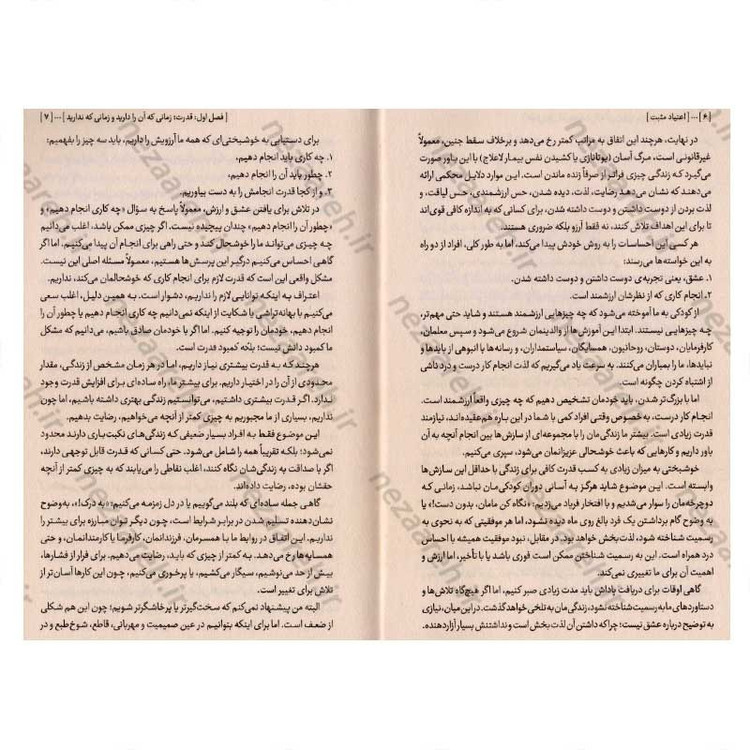 | ۶ | ... [ اعتیاد مثبت ]
در نهایت، هرچند این اتفاق به مراتب کمتر رخ می‌دهد و برخلاف سقط جنین، معمولاً
غیرقانونی است، مرگ آسان (یوتانازی یا کشیدن نفس بیمار لاعلاج) با این باور صورت
می‌گیرد که زندگی چیزی فراتر از صرفاً زنده ماندن است. این موارد دلایل محکمی ارائه
می‌دهند که نشان می‌دهد رضایت، لذت، دیده شدن، حس ارزشمندی، حس لیاقت، و
لذت بردن از دوست داشتن و دوست داشته شدن، برای کسانی که به اندازه کافی قوی‌اند
تا برای این اهداف تلاش کنند، نه فقط آرزو بلکه ضروری هستند.
هر کسی این احساسات را به روش خودش پیدا می‌کند، اما به طور کلی، افراد از دو راه
به این خواسته‌ها می‌رسند:
۱. عشق، یعنی تجربه‌ی دوست داشتن و دوست داشته شدن.
۲. انجام کاری که از نظرشان ارزشمند است.
از کودکی به ما آموخته می‌شود که چه چیزهایی ارزشمند هستند و شاید حتی مهم‌تر،
چه چیزهایی نیستند. ابتدا این آموزش‌ها از والدینمان شروع می‌شود و سپس معلمان،
کارفرمایان، دوستان، روحانیون، همسایگان، سیاستمداران، و رسانه‌ها با انبوهی از بایدها و
نبایدها، ما را بمباران می‌کنند. به سرعت یاد می‌گیریم که لذت انجام کار درست و درد ناشی
از اشتباه کردن چگونه است.
اما با بزرگ‌تر شدن، باید خودمان تشخیص دهیم که چه چیزی واقعاً ارزشمند است.
انجام کار درست، به خصوص وقتی افراد کمی با شما در این باره هم‌عقیده‌اند، نیازمند
قدرت زیادی است. بیشتر ما زندگی‌مان را با مجموعه‌ای از سازش‌ها بین انجام آنچه به آن
باور داریم و کارهایی که باعث خوشحالی عزیزانمان می‌شود، سپری می‌کنیم.
خوشبختی به میزان زیادی به کسب قدرت کافی برای زندگی با حداقل این سازش‌ها
وابسته است. این موضوع شاید هرگز به آسانی دوران کودکی‌مان نباشد، زمانی که
دوچرخه‌مان را سوار می‌شدیم و با افتخار فریاد می‌زدیم: «نگاه کن مامان، بدون دست!» یا
به وضوح گام برداشتن یک فرد بالغ روی ماه دیده نشود، اما هر موفقیتی که به نحوی به
رسمیت شناخته شود، لذت‌بخش خواهد بود. در مقابل، نبود موفقیت همیشه با احساس
درد همراه است. این به رسمیت شناختن ممکن است فوری باشد یا با تأخیر، اما ارزش و
اهمیت آن برای ما تغییری نمی‌کند.
گاهی اوقات برای دریافت پاداش باید مدت زیادی صبر کنیم، اما اگر هیچ‌گاه تلاش‌ها و
دستاوردهای ما به رسمیت شناخته نشود، زندگی‌مان به تلخی خواهد گذشت. در این میان، نیازی
به توضیح درباره عشق نیست؛ چرا که داشتن آن لذت بخش است و نداشتنش بسیار آزاردهنده.
[ فصل اول: قدرت؛ زمانی که آن را دارید و زمانی که ندارید ] ... | ۷ |
برای دستیابی به خوشبختی‌ای که همه ما آرزویش را داریم، باید سه چیز را بفهمیم:
۱. چه کاری باید انجام دهیم،
۲. چطور باید آن را انجام دهیم،
۳. و از کجا قدرت انجامش را به دست بیاوریم.
در تلاش برای یافتن عشق و ارزش، معمولاً پاسخ به سؤال «چه کاری انجام دهیم» و
«چطور آن را انجام دهیم» چندان پیچیده نیست. اگر چیزی ممکن باشد، اغلب می‌دانیم
چه چیزی می‌تواند ما را خوشحال کند و حتی راهی برای انجام آن پیدا می‌کنیم. اما اگر
گاهی احساس می‌کنیم درگیر این پرسش‌ها هستیم، معمولاً مسئله اصلی این نیست.
مشکل واقعی این است که قدرت لازم برای انجام کاری که خوشحالمان می‌کند، نداریم.
اعتراف به اینکه توانایی لازم را نداریم، دشوار است. به همین دلیل، اغلب سعی
می‌کنیم با بهانه‌تراشی یا شکایت از اینکه نمی‌دانیم چه کاری انجام دهیم یا چطور آن را
انجام دهیم، خودمان را توجیه کنیم. اما اگر با خودمان صادق باشیم، می‌دانیم که مشکل
ما کمبود دانش نیست؛ بلکه کمبود قدرت است.
هرچند که به قدرت بیشتری نیاز داریم، اما در هر زمان مشخص از زندگی، مقدار
محدودی از آن را در اختیار داریم. برای بیشتر ما، راه ساده‌ای برای افزایش قدرت وجود
ندارد. اگر قدرت بیشتری داشتیم، می‌توانستیم زندگی بهتری داشته باشیم، اما چون
نداریم، بسیاری از ما مجبوریم به چیزی کمتر از آنچه می‌خواهیم، رضایت بدهیم.
این موضوع فقط به افراد بسیار ضعیفی که زندگی‌های نکبت‌باری دارند محدود
نمی‌شود؛ بلکه تقریباً همه را شامل می‌شود. حتی کسانی که قدرت قابل توجهی دارند،
اگر با صداقت به زندگی‌شان نگاه کنند، اغلب نقاطی را می‌یابند که به چیزی کمتر از آنچه
حقشان بوده، رضایت داده‌اند.
گاهی جمله ساده‌ای که بلند می‌گوییم یا در دل زمزمه می‌کنیم: «به درک!»، به‌وضوح
نشان‌دهنده تسلیم شدن در برابر شرایط است، چون دیگر توان مبارزه برای بیشتر را
نداریم. این اتفاق در روابط ما با همسرمان، فرزندانمان، کارفرما یا کارمندانمان، و حتی
همسایه‌ها رخ می‌دهد. به کمتر از چیزی که باید، رضایت می‌دهیم. برای فرار از فشارها،
بیش از حد می‌نوشیم، سیگار می‌کشیم، یا پرخوری می‌کنیم، چون این کارها آسان‌تر از
تلاش برای تغییر است.
البته من پیشنهاد نمی‌کنم که سخت‌گیرتر یا پرخاشگرتر شویم؛ چون این هم شکلی
از ضعف است. اما برای اینکه بتوانیم در عین صمیمیت و مهربانی، قاطع، شوخ‌طبع و در
nezaareh.ir